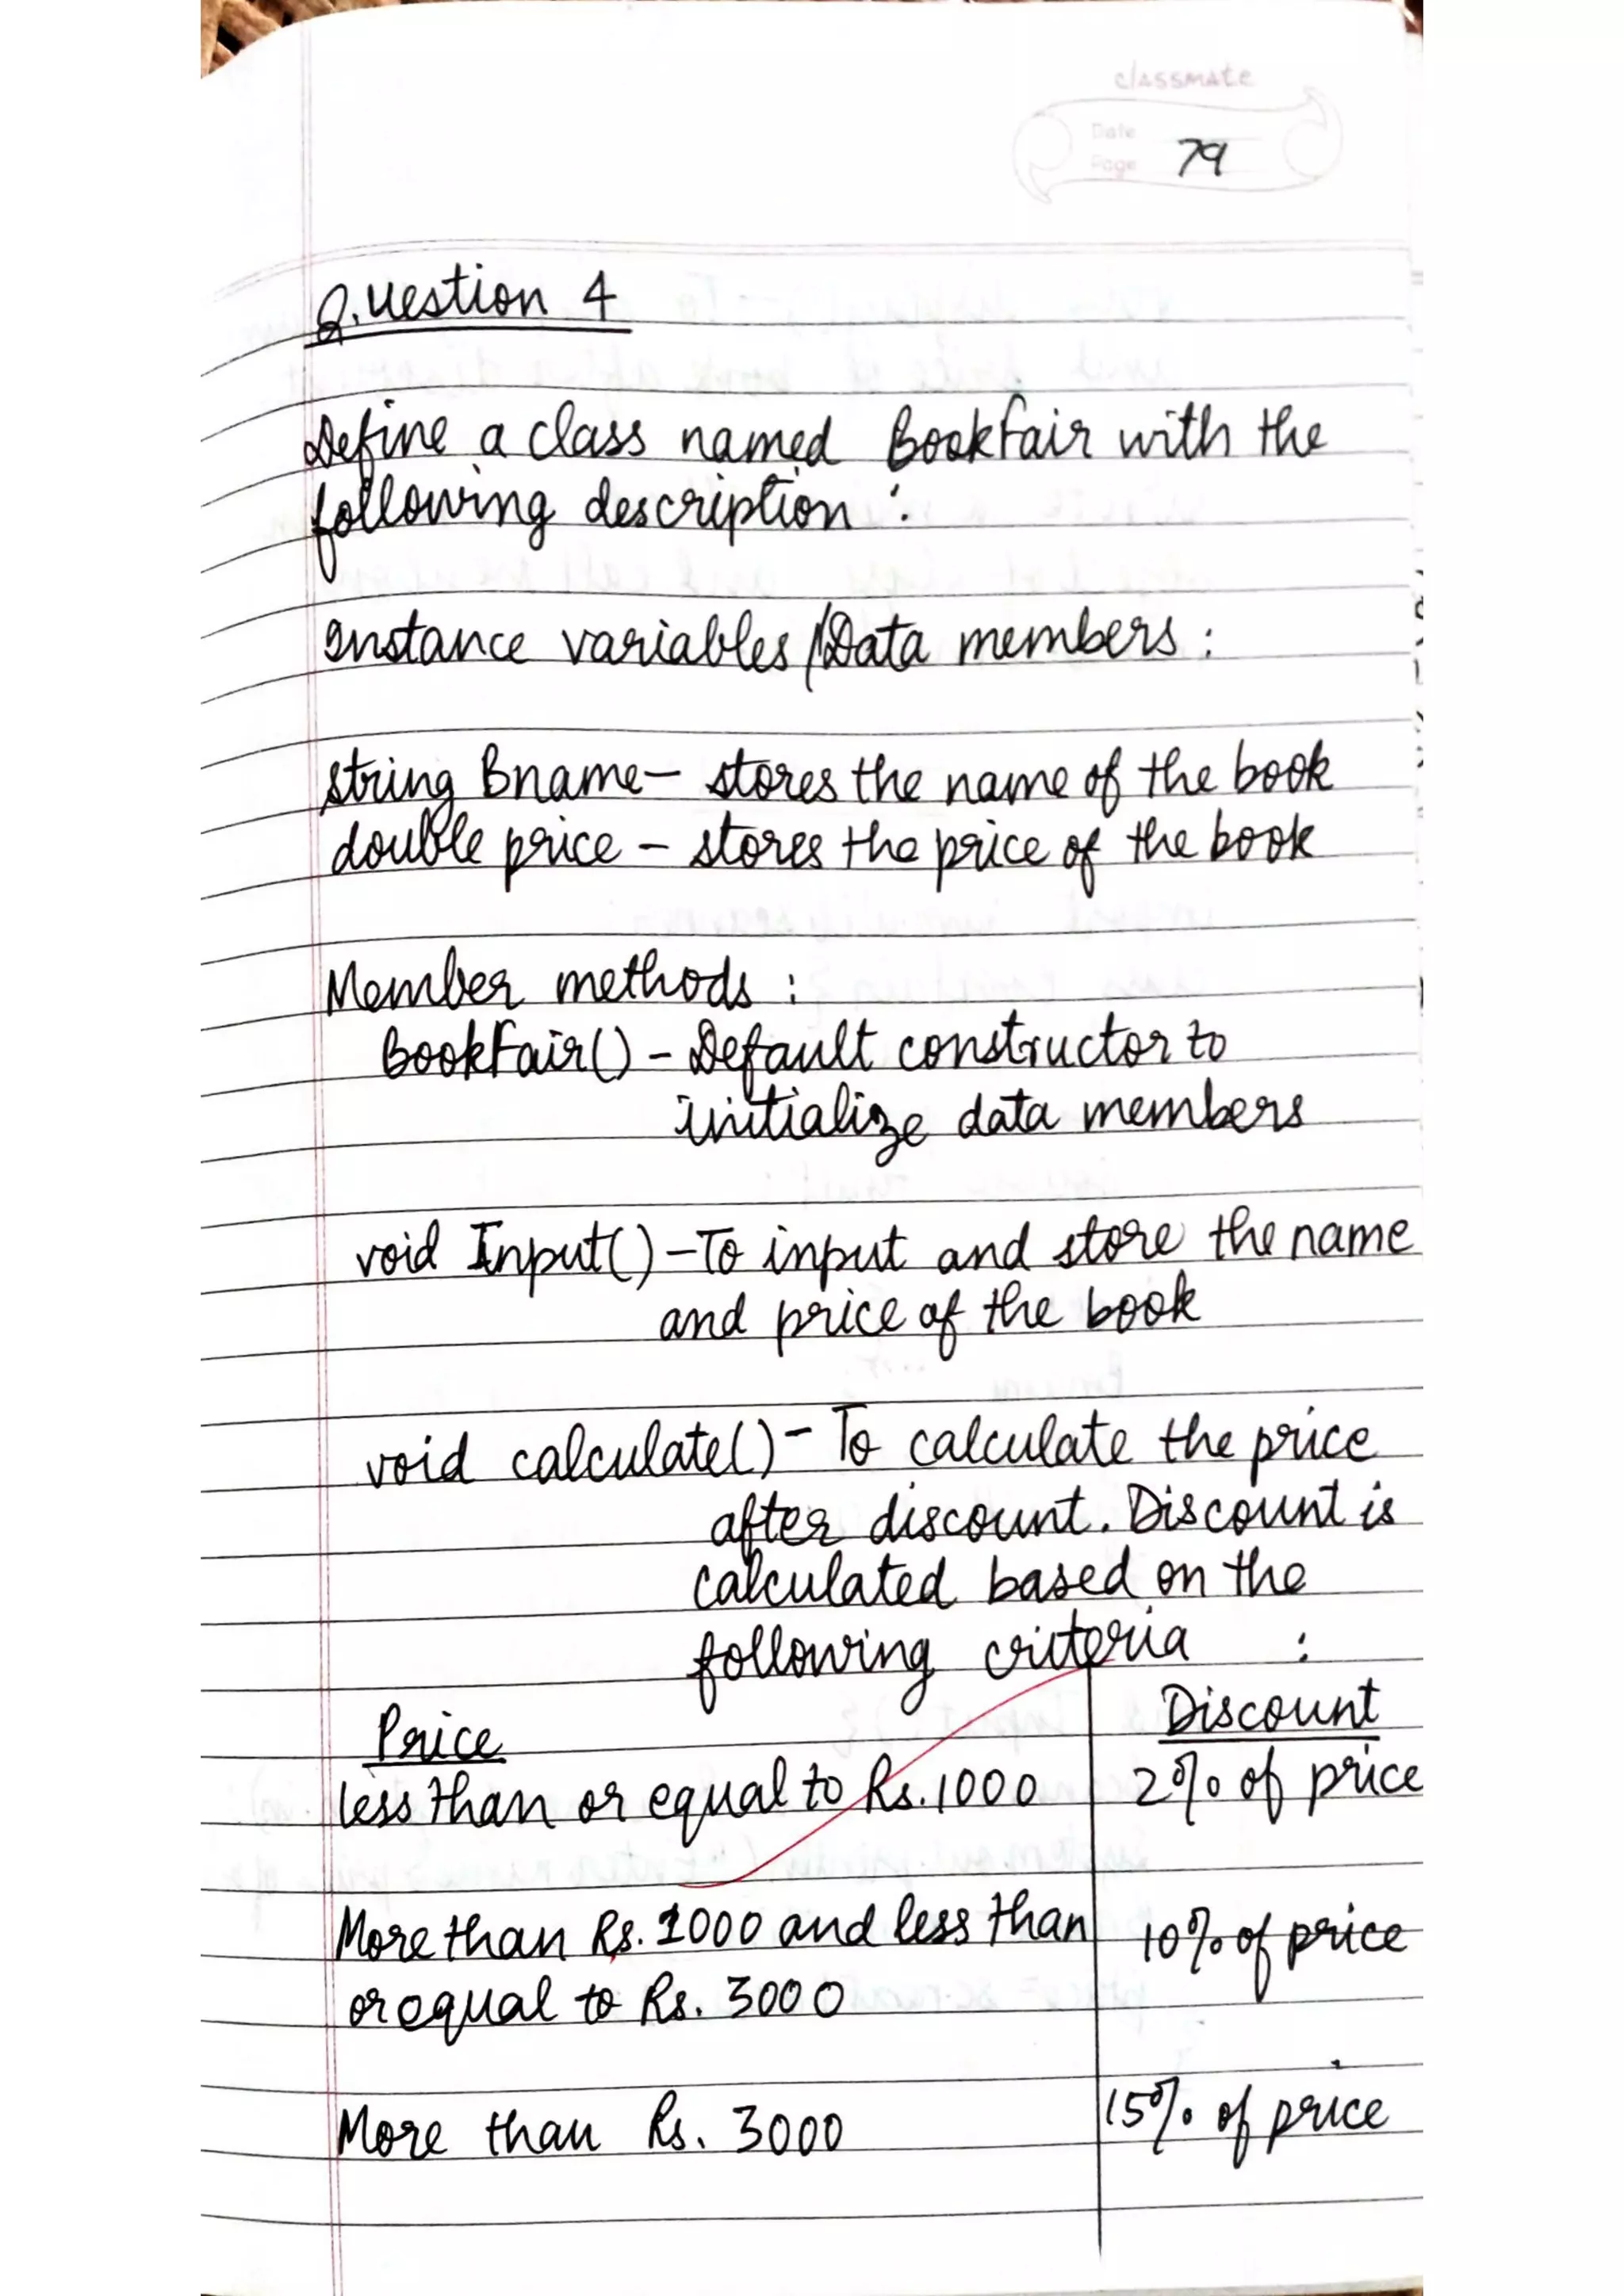 classmate
Date
Page 79
Question 4
Define a class named BookFair with the
following description :
Instance variables/Data members :
string Bname - stores the name of the book
double price - stores the price of the book
Member methods :
BookFair() - Default constructor to
initialize data members
void Input() - To input and store the name
and price of the book
void calculate() - To calculate the price
after discount. Discount is
calculated based on the
following criteria :
Price Discount
less than or equal to Rs. 1000 2% of price
More than Rs. 1000 and less than 10% of price
or equal to Rs. 3000
More than Rs. 3000 15% of price